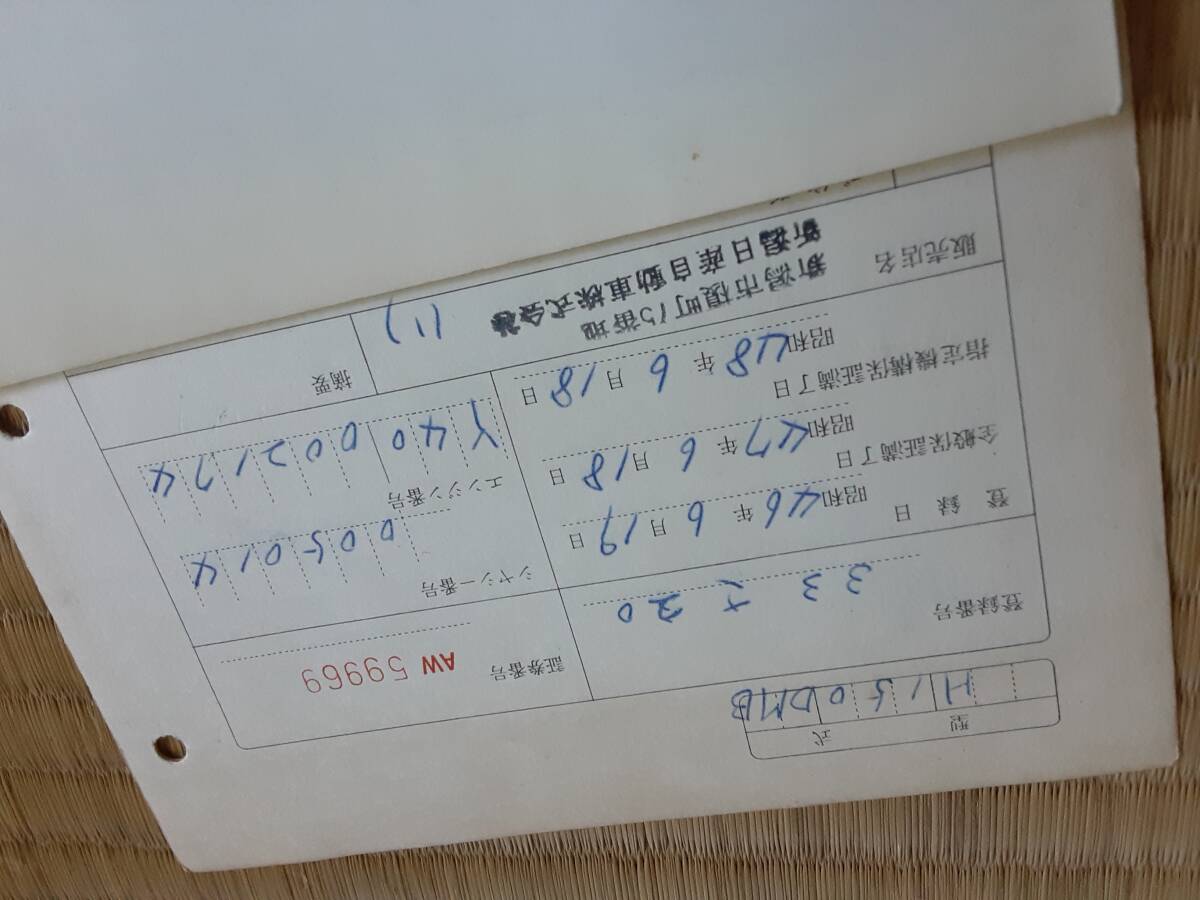 型 式
H150DMB
登録番号
33 さ 20
証券番号 AW 59969
登 録 日
昭和46年6月19日
シャシー番号
005014
全般保証満了日
昭和47年6月18日
エンジン番号
Y40002174
指定機構保証満了日
昭和48年6月18日
摘要
(1)
販売店名
新潟市榎町15番地
新潟日産自動車株式会社